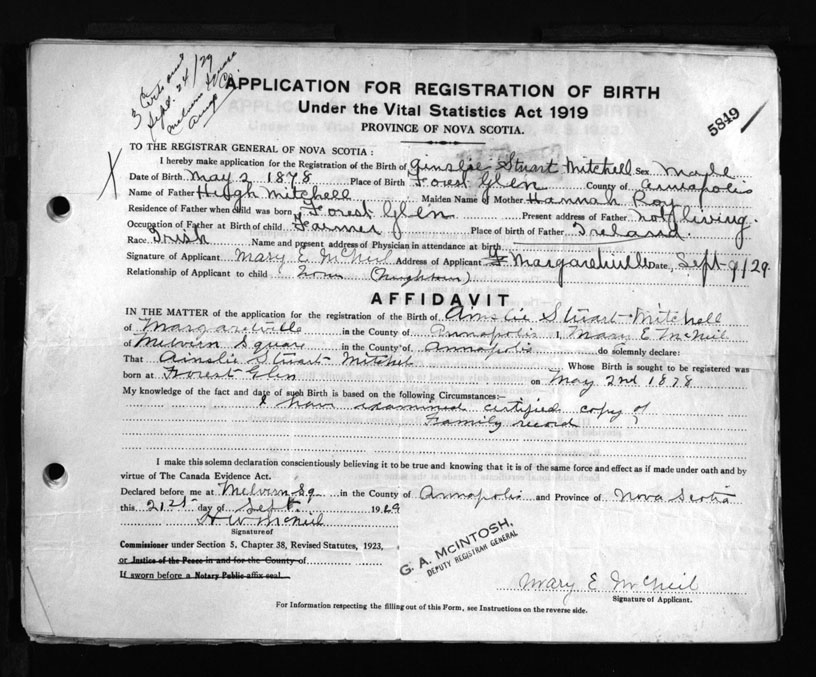 3 Certs and
Sept. 24/29
Melvern Square
Anna Co.
APPLICATION FOR REGISTRATION OF BIRTH
Under the Vital Statistics Act 1919
PROVINCE OF NOVA SCOTIA.
5849
TO THE REGISTRAR GENERAL OF NOVA SCOTIA:
I hereby make application for the Registration of the Birth of Ainslie Stuart Mitchell Sex Male
Date of Birth May 2 1878 Place of Birth Forest Glen County of Annapolis
Name of Father Hugh Mitchell Maiden Name of Mother Hannah Roy
Residence of Father when child was born Forest Glen Present address of Father not living.
Occupation of Father at Birth of child Farmer Place of Birth of Father Ireland.
Race Irish Name and present address of Physician in attendance at birth
Signature of Applicant Mary E McNeil Address of Applicant Margaretville Date, Sept 9/29.
Relationship of Applicant to child None (Neighbour)
AFFIDAVIT
IN THE MATTER of the application for the registration of the Birth of Ainslie Stuart Mitchell
of Margaretville in the County of Annapolis I, Mary E McNeil
of Melvern Square in the County of Annapolis do solemnly declare:
That Ainslie Stuart Mitchel Whose Birth is sought to be registered was
born at Forest Glen on May 2nd 1878
My knowledge of the fact and date of such Birth is based on the following Circumstances:—
I have examined certified copy of
Family record
I make this solemn declaration conscientiously believing it to be true and knowing that it is of the same force and effect as if made under oath and by
virtue of The Canada Evidence Act.
Declared before me at Melvern Sq in the County of Annapolis and Province of Nova Scotia
this 21st day of Sept. 1929
H W McNeil
Signature of
Commissioner under Section 5, Chapter 38, Revised Statutes, 1923,
or Justice of the Peace in and for the County of
If sworn before a Notary Public affix seal.
G. A. McINTOSH,
DEPUTY REGISTRAR GENERAL
Mary E McNeil
Signature of Applicant.
For Information respecting the filling out of this Form, see Instructions on the reverse side.